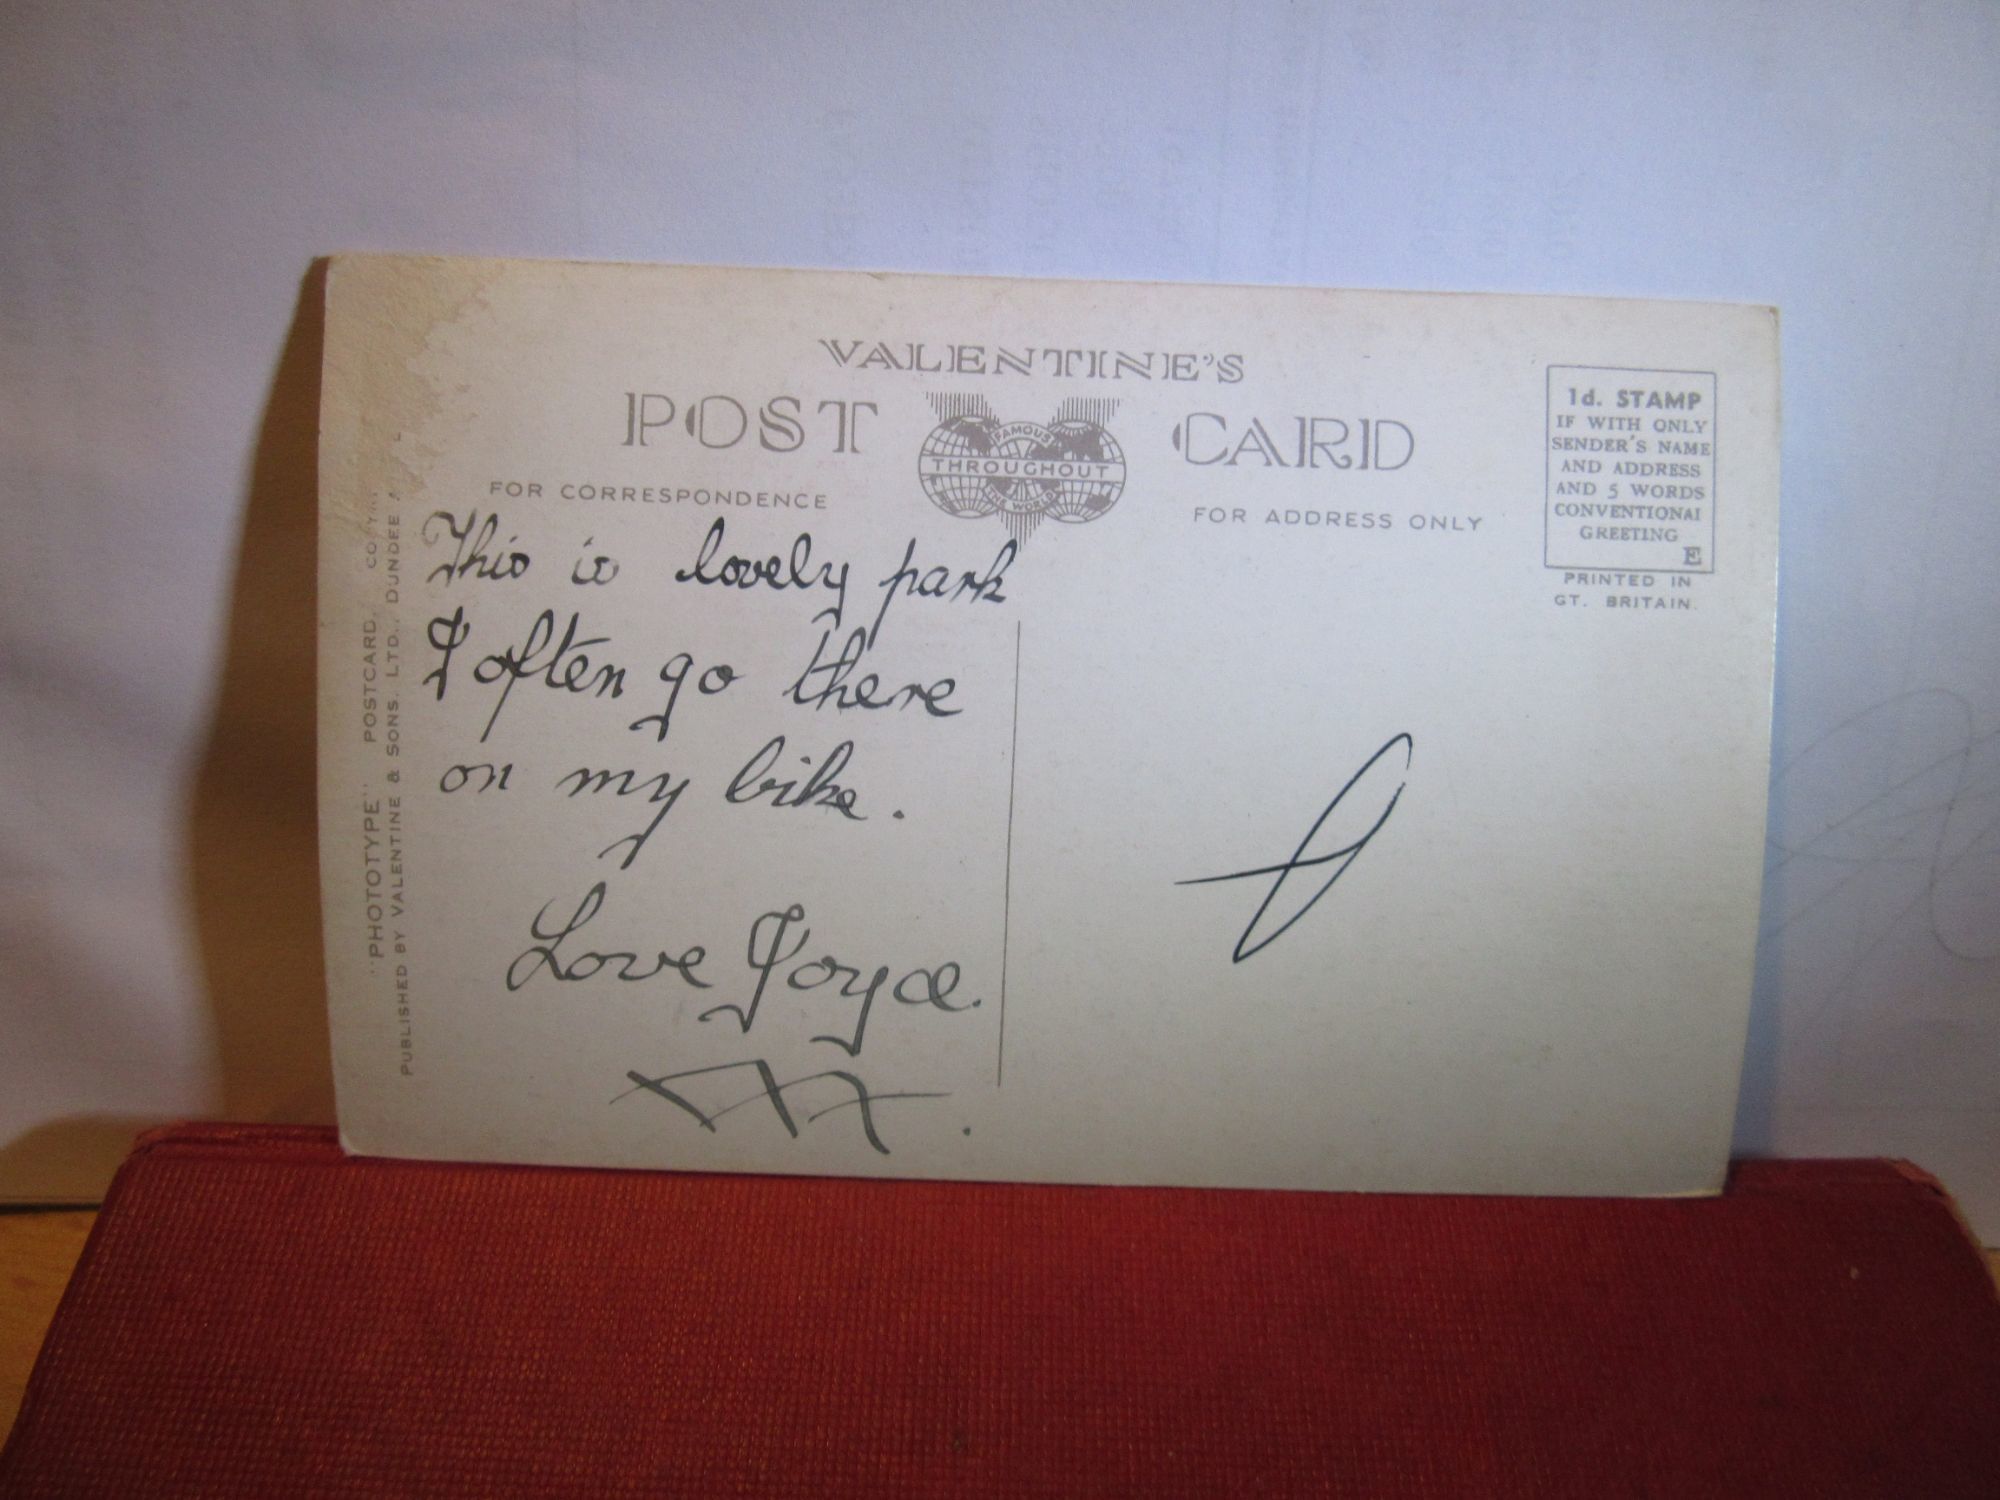 VALENTINE'S
POST CARD
FAMOUS
THROUGHOUT
THE WORLD
FOR CORRESPONDENCE
FOR ADDRESS ONLY
1d. STAMP
IF WITH ONLY
SENDER'S NAME
AND ADDRESS
AND 5 WORDS
CONVENTIONAL
GREETING
E
PRINTED IN
GT. BRITAIN.
This is lovely park
I often go there
on my bike.
Love Joyce.
XXX.
"PHOTOTYPE" POSTCARD.
PUBLISHED BY VALENTINE & SONS. LTD., DUNDEE